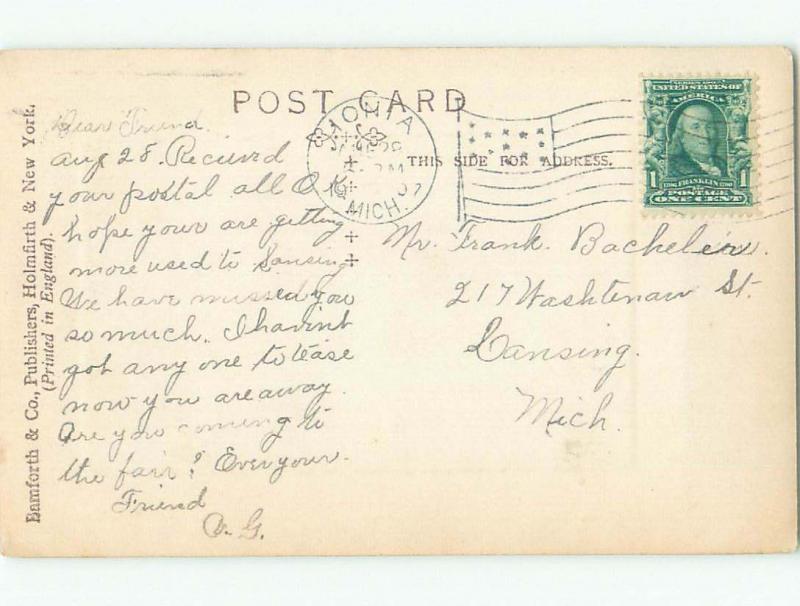 POST CARD
Bamforth & Co., Publishers, Holmfirth & New York.
(Printed in England).
THIS SIDE FOR ADDRESS.
IONIA
MICH.
SERIES 1902
UNITED STATES OF
AMERICA
1 FRANKLIN 1
POSTAGE
ONE CENT
Dear Friend.
Aug 28. Recieved
your postal all O.K.
hope your are getting
more used to Lansing
We have missed you
so much. I havint
got any one to tease
now you are away.
Are you coming to
the fair? Ever your
Friend
G.
Mr. Frank. Bachelor.
217 Washtenaw St.
Lansing.
Mich.